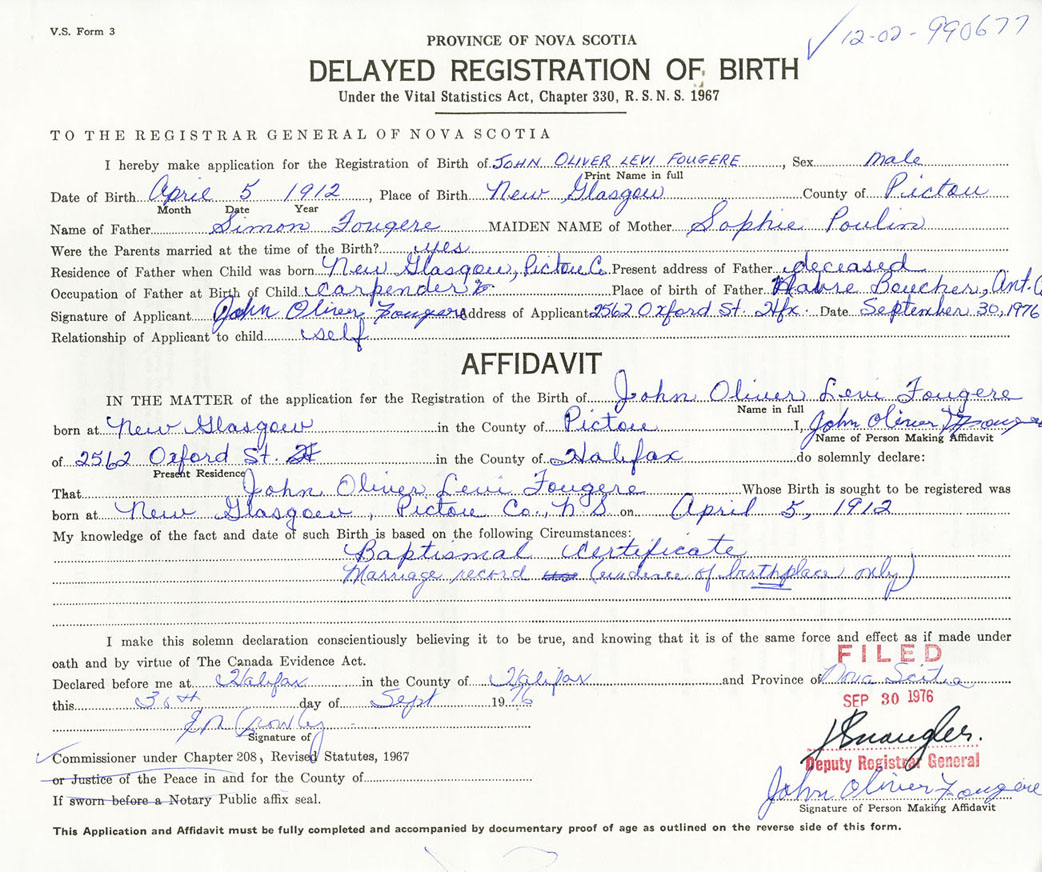 V.S. Form 3
12-02-990677
PROVINCE OF NOVA SCOTIA
DELAYED REGISTRATION OF BIRTH
Under the Vital Statistics Act, Chapter 330, R.S.N.S. 1967
TO THE REGISTRAR GENERAL OF NOVA SCOTIA
I hereby make application for the Registration of Birth of JOHN OLIVER LEVI FOUGERE, Sex male
Print Name in full
Date of Birth April 5 1912, Place of Birth New Glasgow County of Pictou
Month Date Year
Name of Father Simon Fougere MAIDEN NAME of Mother Sophie Poulin
Were the Parents married at the time of the Birth? yes
Residence of Father when Child was born New Glasgow, Pictou Co. Present address of Father deceased
Occupation of Father at Birth of Child carpender Place of birth of Father Havre Boucher, Ant. C
Signature of Applicant John Oliver Fougere Address of Applicant 2562 Oxford St. Hfx. Date September 30, 1976
Relationship of Applicant to child self
AFFIDAVIT
IN THE MATTER of the application for the Registration of the Birth of John Oliver Levi Fougere
Name in full
born at New Glasgow in the County of Pictou I, John Oliver Fougere
Name of Person Making Affidavit
of 2562 Oxford St. in the County of Halifax do solemnly declare:
Present Residence
That John Oliver Levi Fougere Whose Birth is sought to be registered was
born at New Glasgow, Pictou Co., N.S on April 5, 1912
My knowledge of the fact and date of such Birth is based on the following Circumstances:
Baptismal Certificate
Marriage record (evidence of birthplace only)
I make this solemn declaration conscientiously believing it to be true, and knowing that it is of the same force and effect as if made under
oath and by virtue of The Canada Evidence Act.
FILED
Declared before me at Halifax in the County of Halifax and Province of Nova Scotia
this 30th day of Sept 1976
SEP 30 1976
Signature of
Commissioner under Chapter 208, Revised Statutes, 1967
Deputy Registrar General
or Justice of the Peace in and for the County of
John Oliver Fougere
If sworn before a Notary Public affix seal.
Signature of Person Making Affidavit
This Application and Affidavit must be fully completed and accompanied by documentary proof of age as outlined on the reverse side of this form.